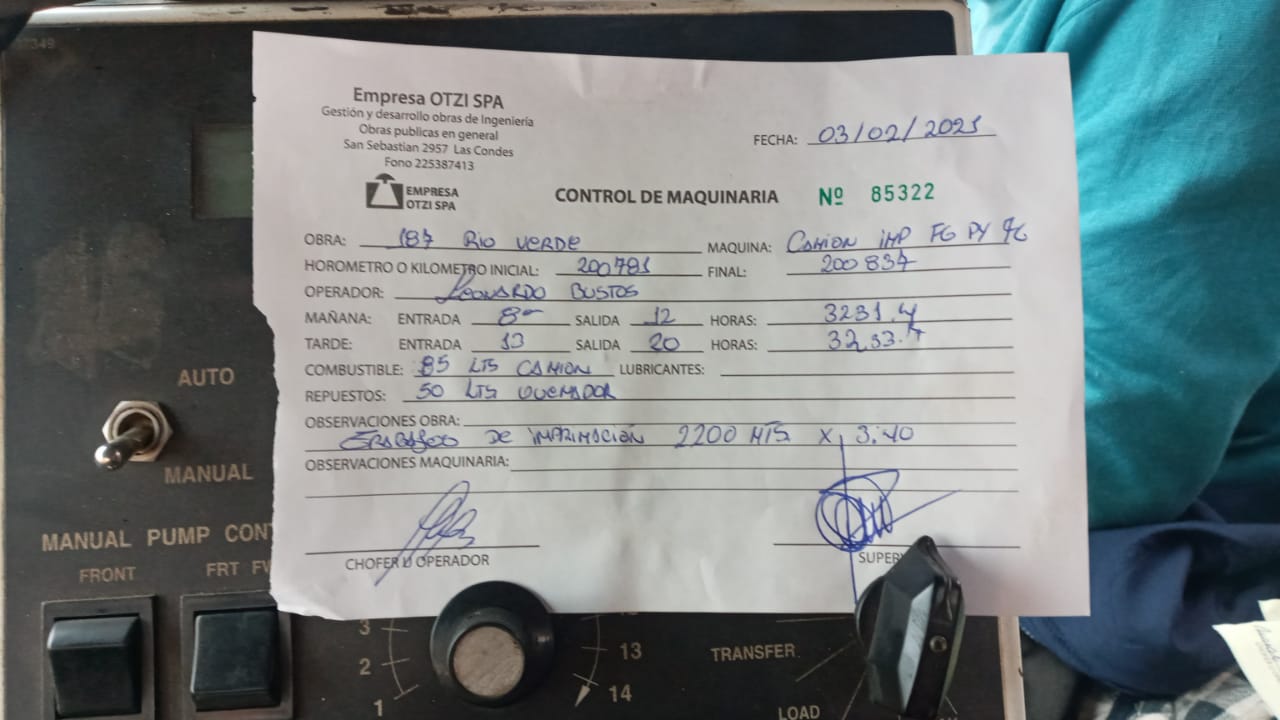 Empresa OTZI SPA
Gestión y desarrollo obras de Ingeniería
Obras publicas en general
San Sebastian 2957 Las Condes
Fono 225387413
EMPRESA
OTZI SPA
FECHA: 03/02/2021
CONTROL DE MAQUINARIA Nº 85322
OBRA: 187 Rio Verde MAQUINA: Camion imp FG PY 76
HOROMETRO O KILOMETRO INICIAL: 200781 FINAL: 200837
OPERADOR: Leonardo Bustos
MAÑANA: ENTRADA 8 SALIDA 12 HORAS: 3231.4
TARDE: ENTRADA 13 SALIDA 20 HORAS: 3233.4
COMBUSTIBLE: 85 LTS CAMION LUBRICANTES:
REPUESTOS: 50 LTS QUEMADOR
OBSERVACIONES OBRA:
DE IMPRIMACIÓN 2200 MTS X 3.40
OBSERVACIONES MAQUINARIA:
CHOFER U OPERADOR
AUTO
MANUAL
MANUAL PUMP
FRONT
FRT
3
2
1
13
14
TRANSFER
LOAD